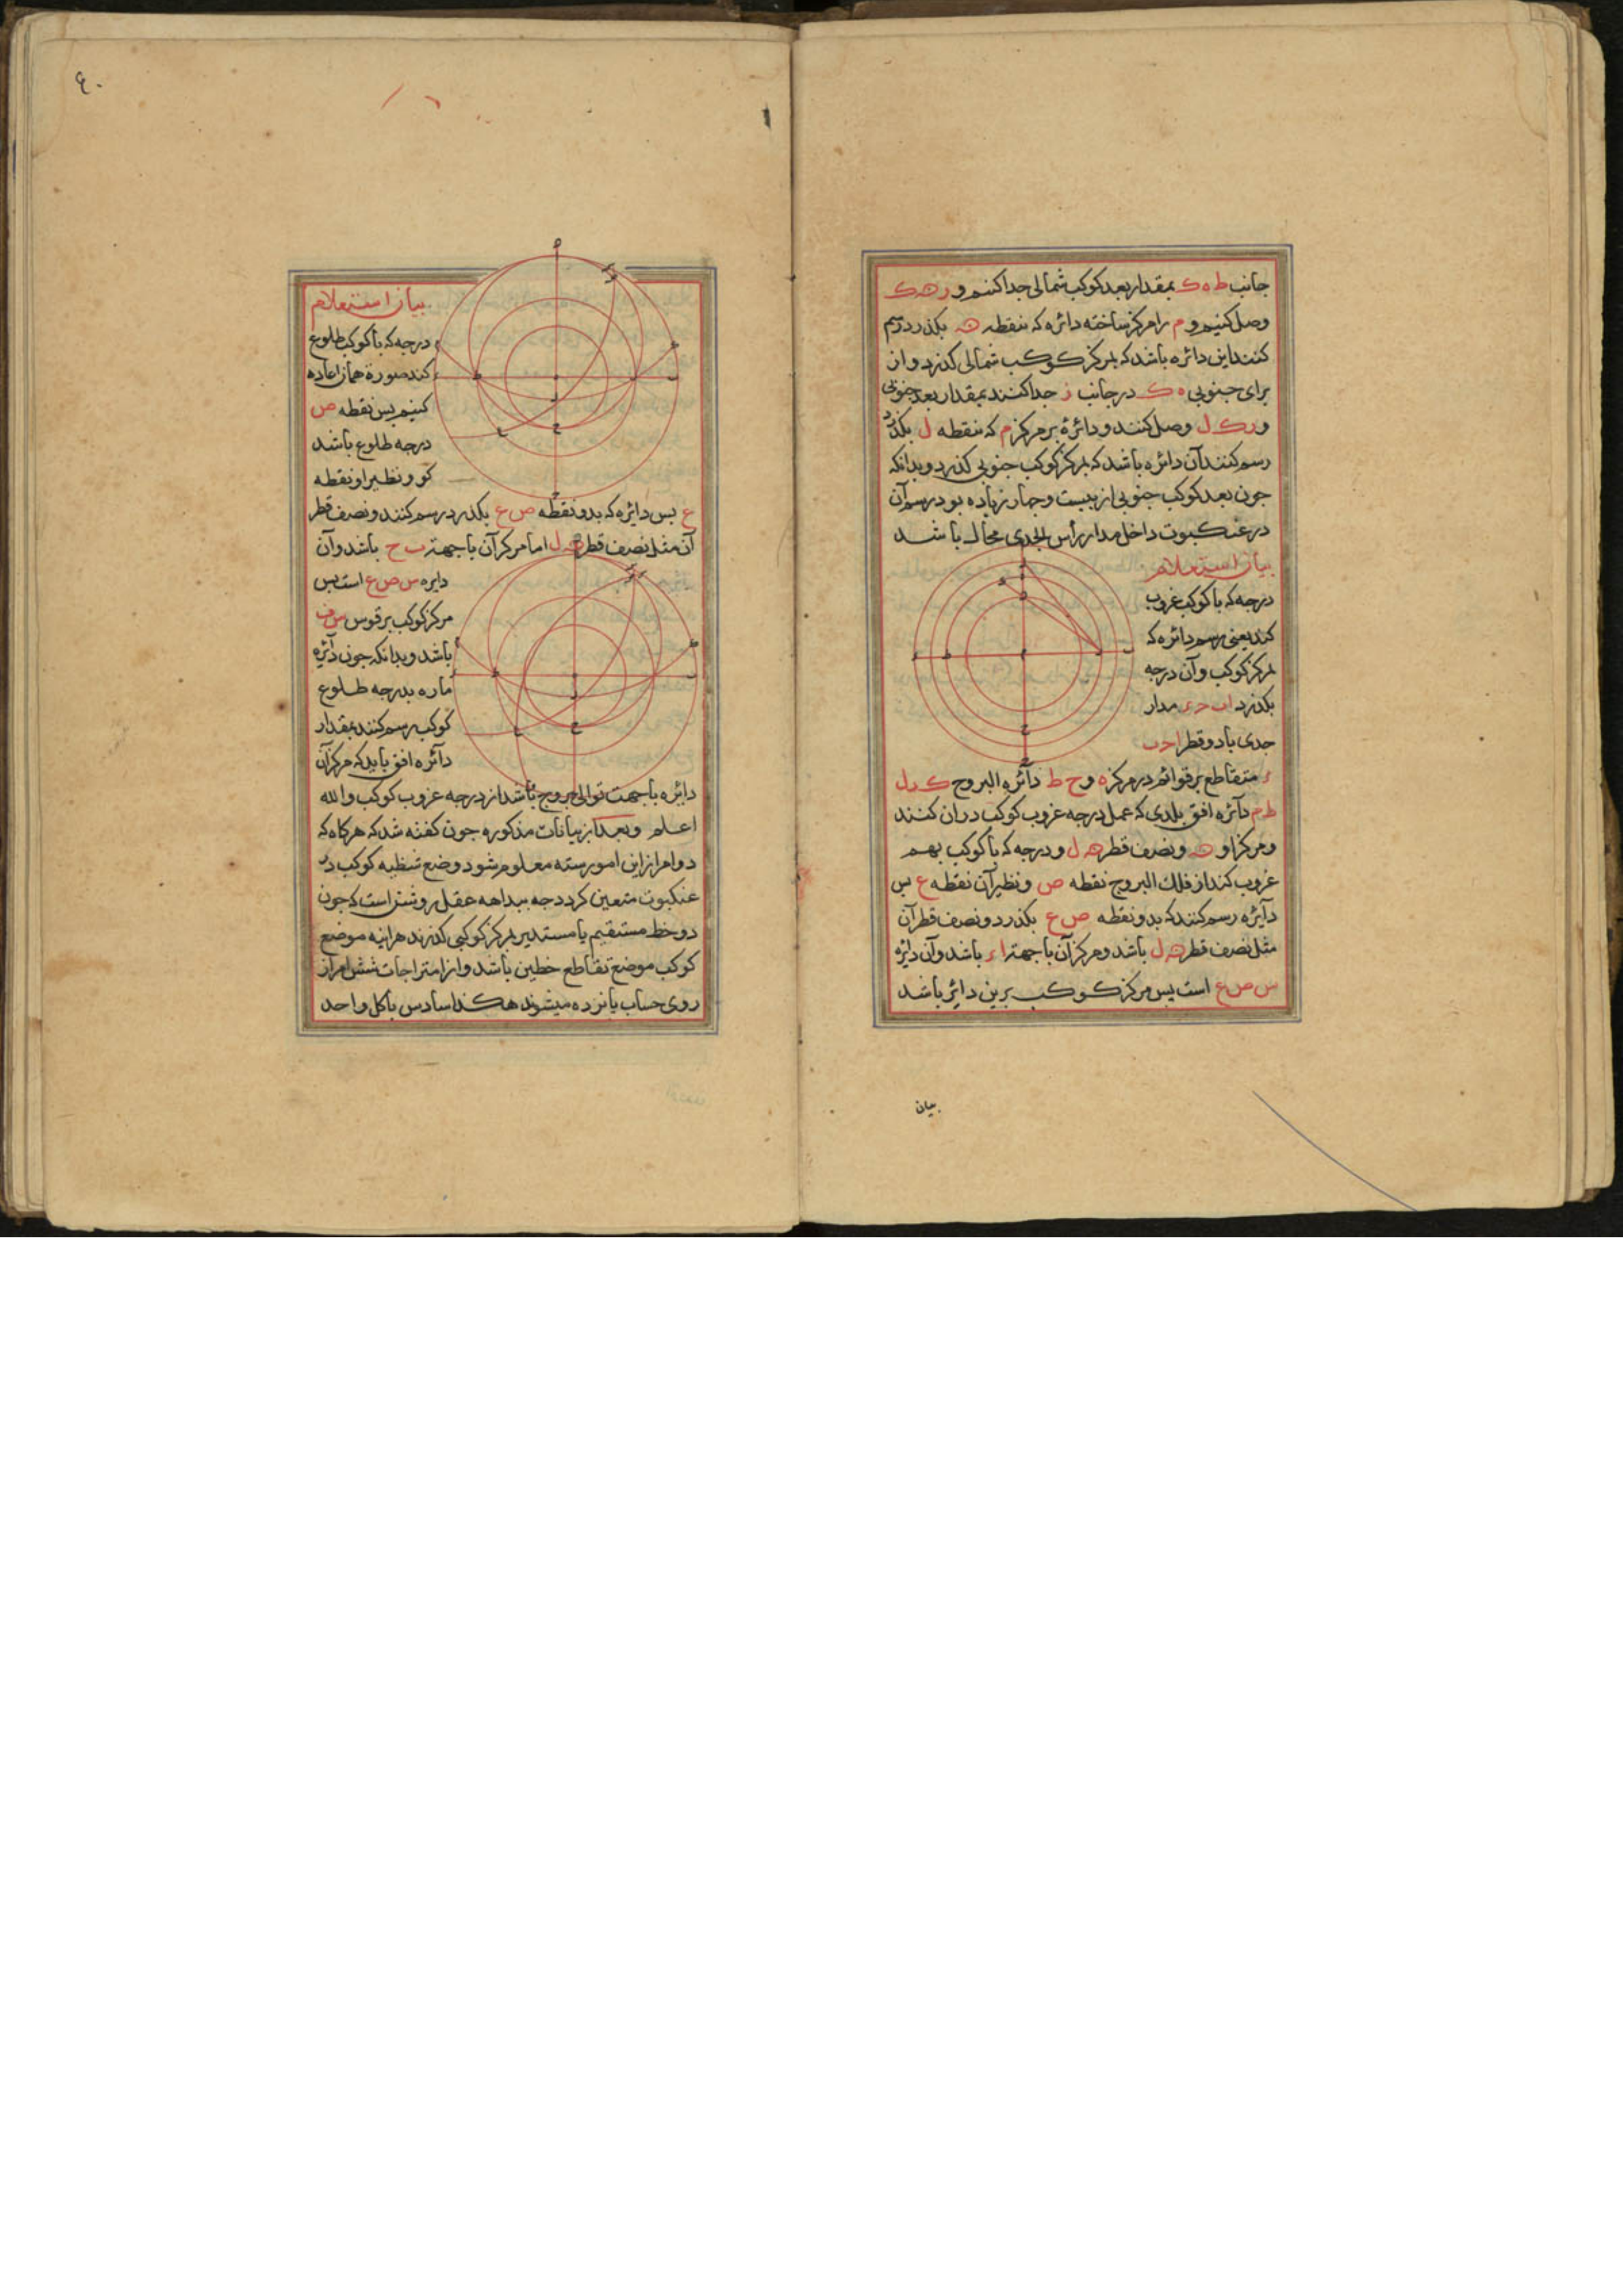 جانب ط ه ک بمقدار بعد کوکب شمالی جدا کنیم و ر ه ک
وصل کنیم و م را مرکز ساخته دائره که بنقطه ه بکذرد رسم
کنند این دائره باشد که بمرکز کوکب شمالی کذرد و از
برای جنوبی ه ک در جانب ز جدا کنند بمقدار بعد جنوبی
و ر ک ل وصل کنند و دائرهٔ بر مرکز م که بنقطه ل بکذرد
رسم کنند آن دائره باشد که بمرکز کوکب جنوبی کذرد و بدانکه
جون بعد کوکب جنوبی از بیست و جهار زیاده بود رسم آن
در عنکبوت داخل مدار رأس الجدی محال باشد
بیان استعلام
درجه که با کوکب غروب
کند یعنی رسم دائره که
بمرکز کوکب و آن درجه
بکذرد ا ب ح ء مدار
جدی باد و قطر ا ح ب
ء متقاطع بر قوائم در مرکز ه و ح ط دآئره البروج ک ل
ط م دآئره افق بلدی که عمل درجه غروب کوکب در ان کنند
و مرکز او ه و نصف قطر ه ل و درجه که با کوکب بهم
غروب کند از فلک البروج نقطه ص و نظیر آن نقطه ع بس
دآئره رسم کنند که بدو نقطه ص ع بکذرد و نصف قطر آن
مثل نصف قطر ه ل باشد و مرکز آن با جهة ا ء باشد و آن دائره
س ص ع است بس مرکز کوکب برین دائره باشد
بیان
٤٠
بیان استعلام
درجه که با کوکب طلوع
کند صورة همان اعاده
کنیم بس نقطه ص
درجه طلوع باشد
کو و نظیر او نقطه
ع بس دائره که بدو نقطه ص ع بکذرد رسم کنند و نصف قطر
آن مثل نصف قطر ه ل اما مرکز آن با جهة ب ح باشد و آن
دایره س ص ع است بس
مرکز کوکب بر قوس س ف
باشد و بدانکه جون دآئره
ماره بدرجه طلوع
کوکب رسم کنند بمقدار
دآئره افق باید که مرکز آن
دائره با جهت توالی بروج باشد از درجه غروب کوکب والله
اعلم و بعد از بیانات مذکوره جون کفته شد که هرکاه که
دو امر از این امور سته معلوم شود وضع شظیه کوکب در
عنکبوت متعین کردد جه ببداهه عقل روشن است که جون
دو خط مستقیم یا مستدیر بمرکز کوکبی کذرند هراینه موضع
کوکب موضع تقاطع خطین باشد و از امتزاجات شش امر از
روی حساب بانزده میشوند هکذا سادس با کل واحد